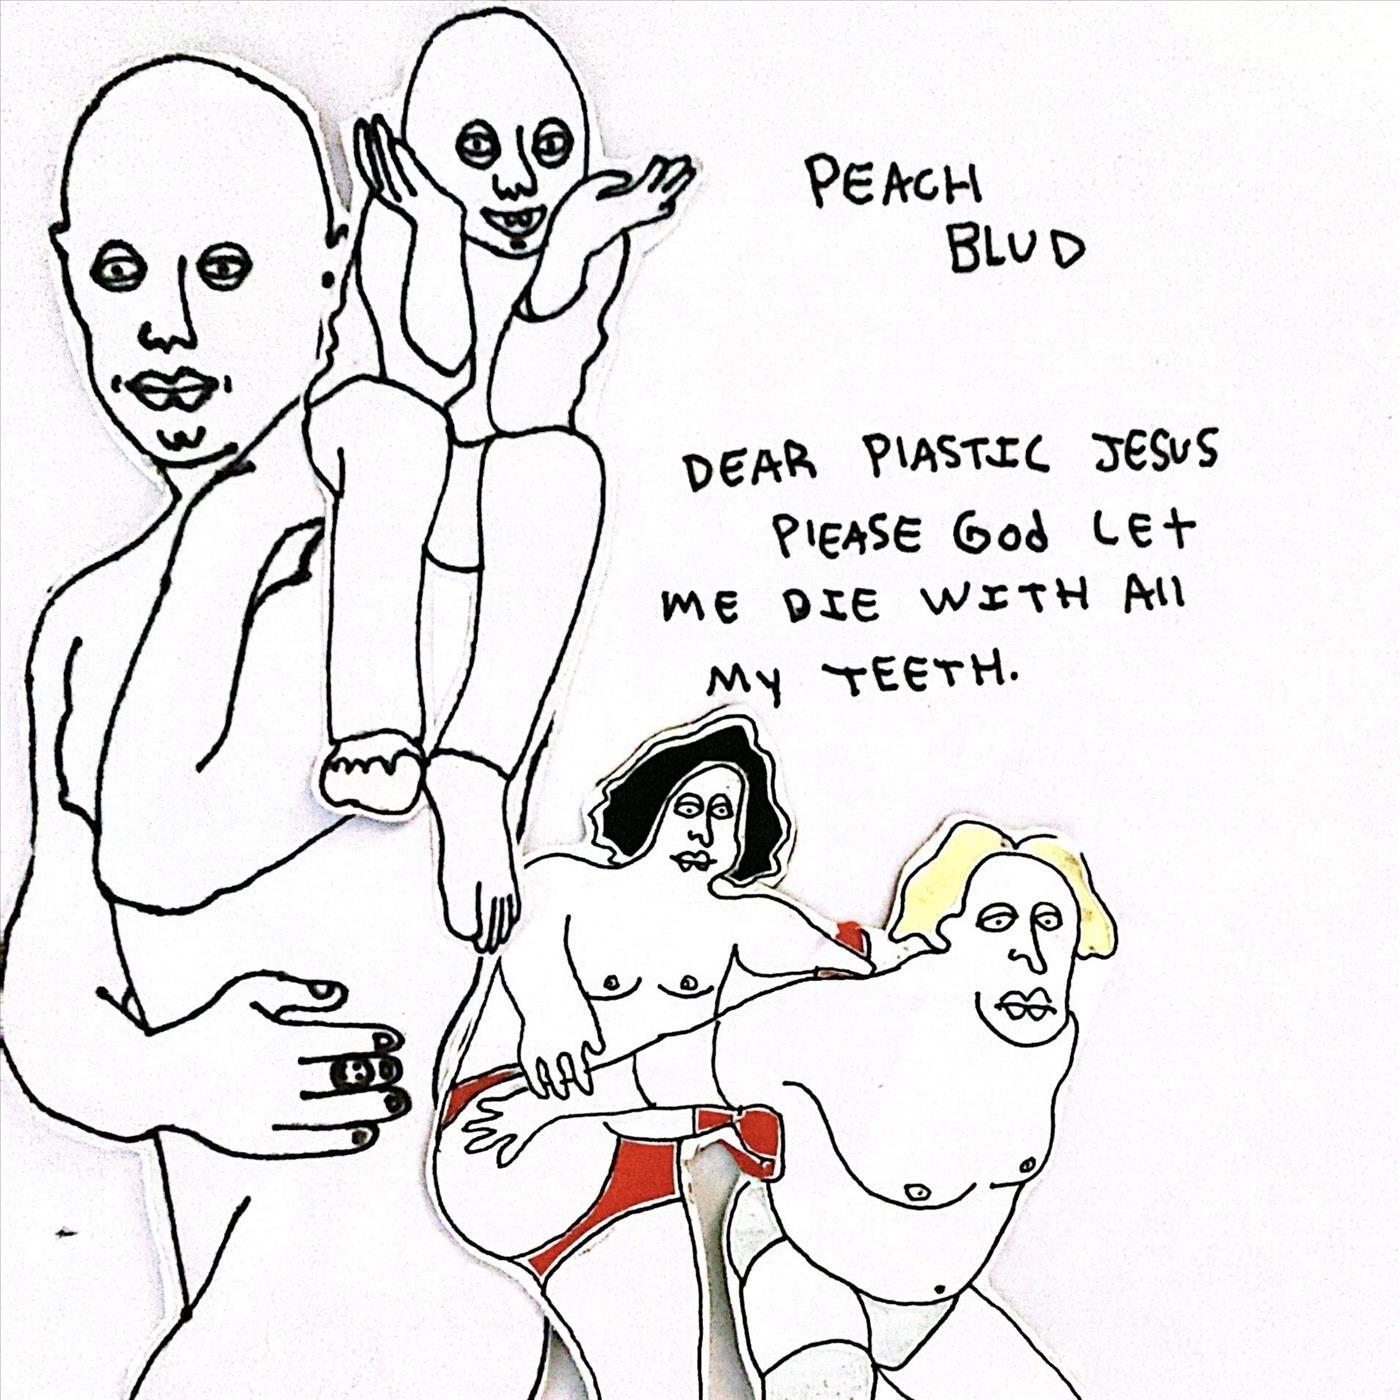 PEACH
BLUD
DEAR PlASTIC JESUS
PlEASE God LEt
ME DIE WITH All
My TEETH.